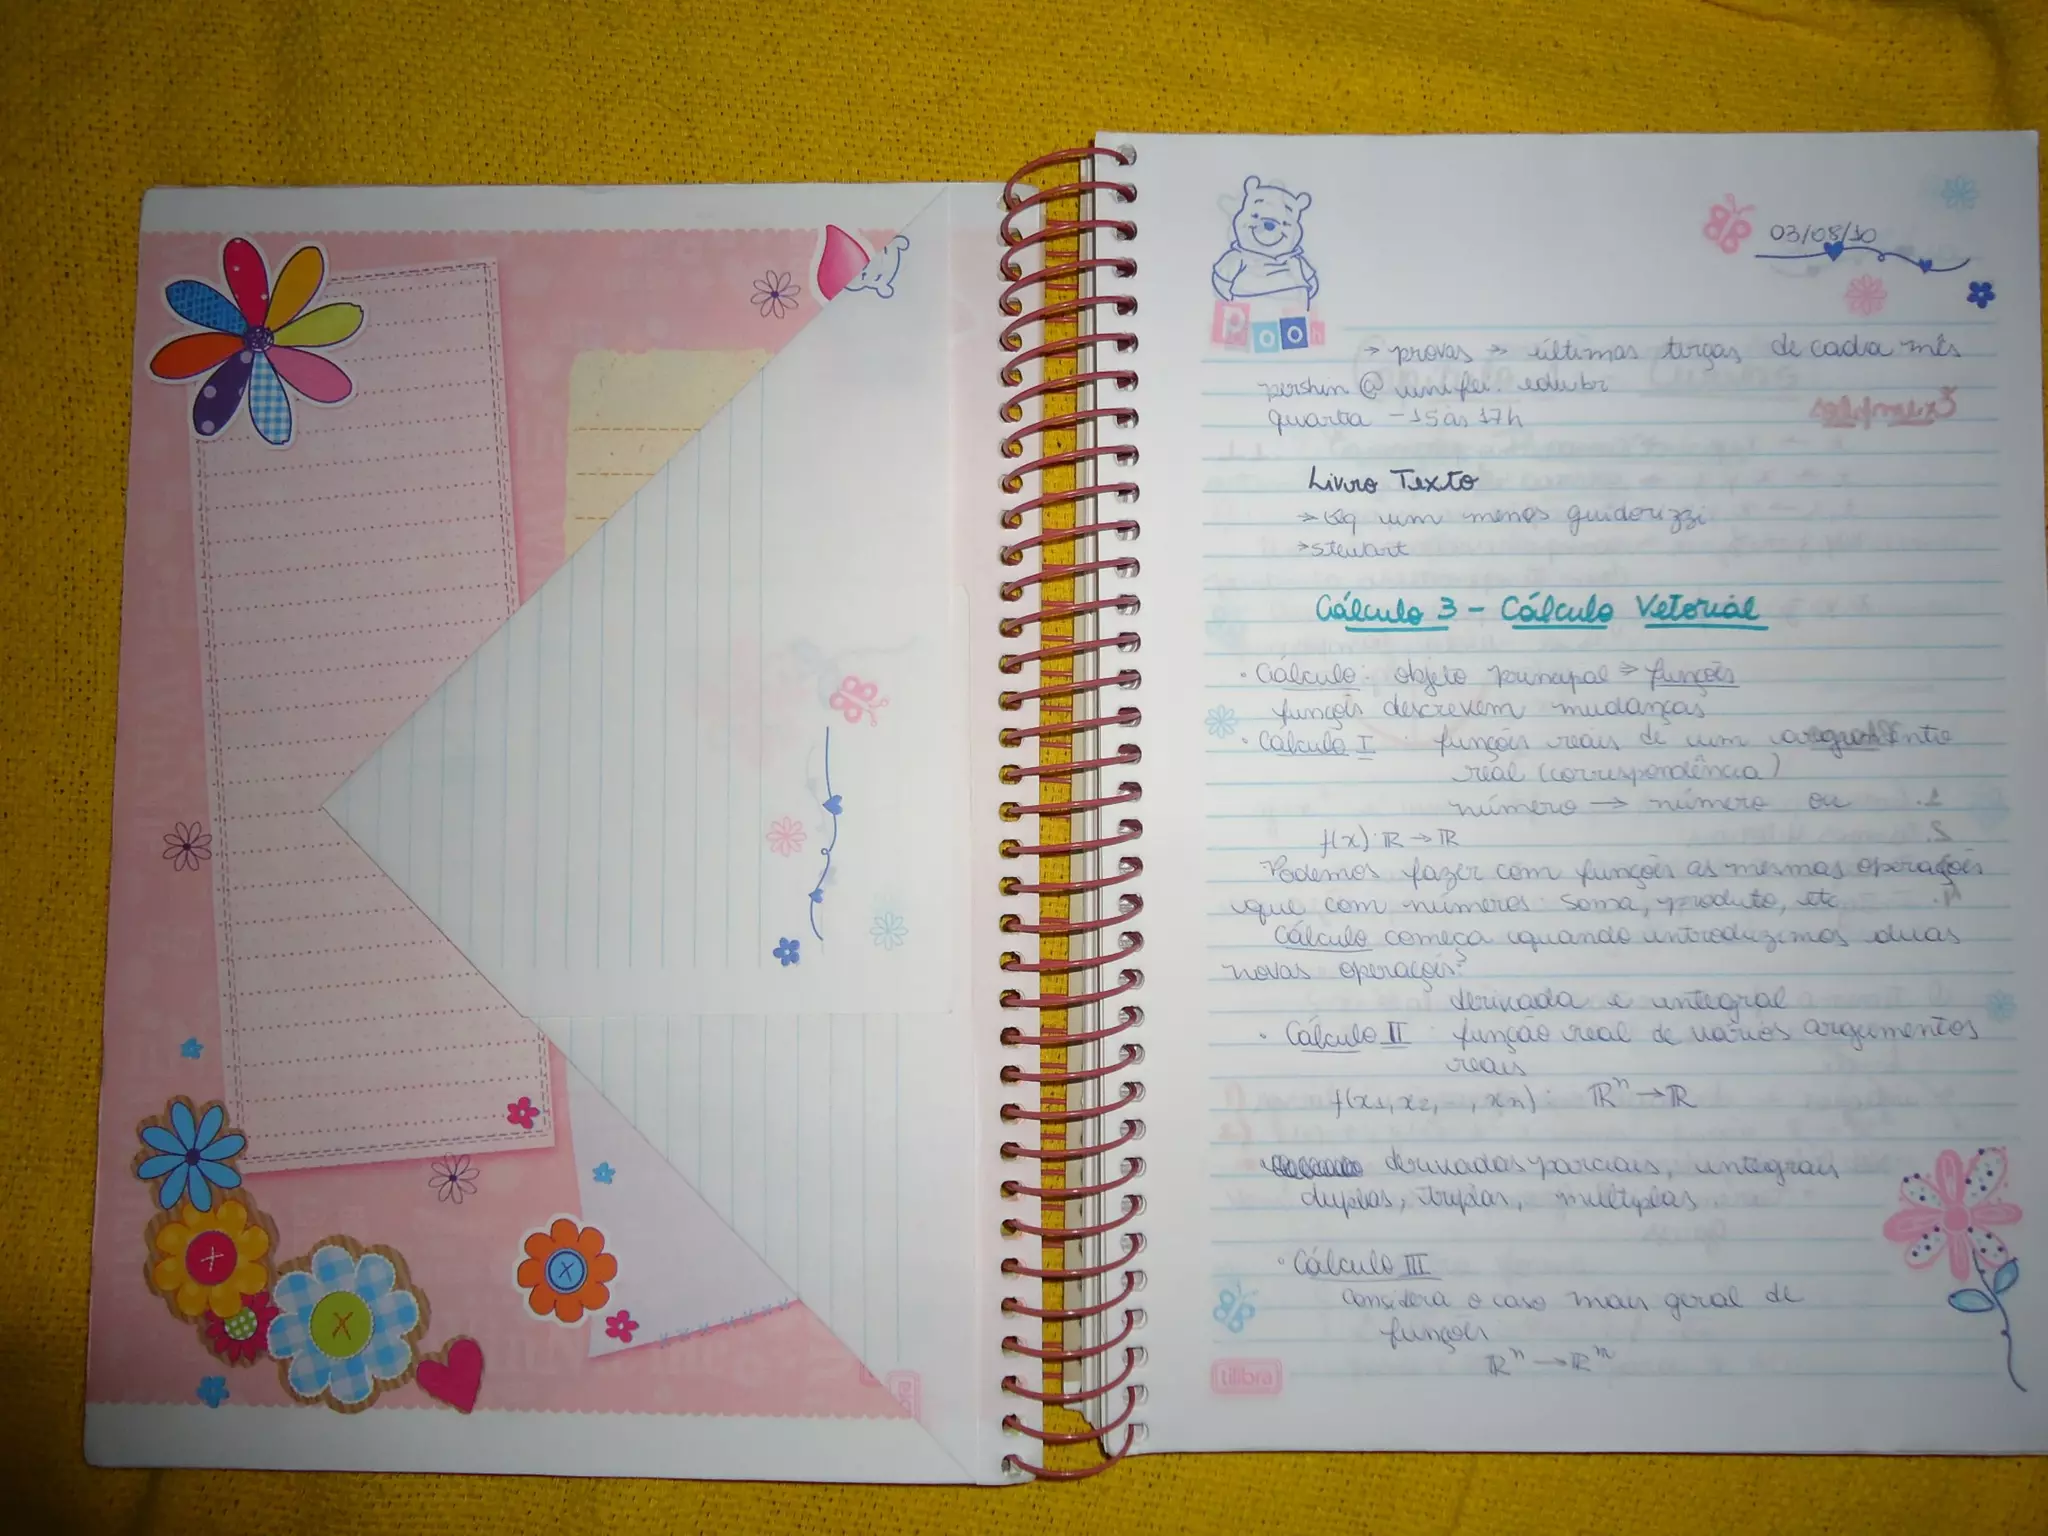 03/08/10
Pooh
→ provas → últimas terças de cada mês
pershin@unifei.edu.br
quarta - 15 às 17h
Livro Texto
um menos guidorizzi
→ stewart
Cálculo 3 - Cálculo Vetorial
• Cálculo: objeto principal → funções
funções descrevem mudanças
• Cálculo I : funções reais de um argumento
real (correspondência)
número → número ou
f(x): ℝ → ℝ
Podemos fazer com funções as mesmas operações
que com números: soma, produto, etc.
Cálculo começa quando introduzimos duas
novas operações:
derivada e integral
• Cálculo II : função real de vários argumentos
reais
f(x1, x2, ..., xn): ℝⁿ → ℝ
derivadas parciais, integrais
duplas, triplas, múltiplas.
• Cálculo III
considera o caso mais geral de
funções
ℝⁿ → ℝᵐ
tilibra